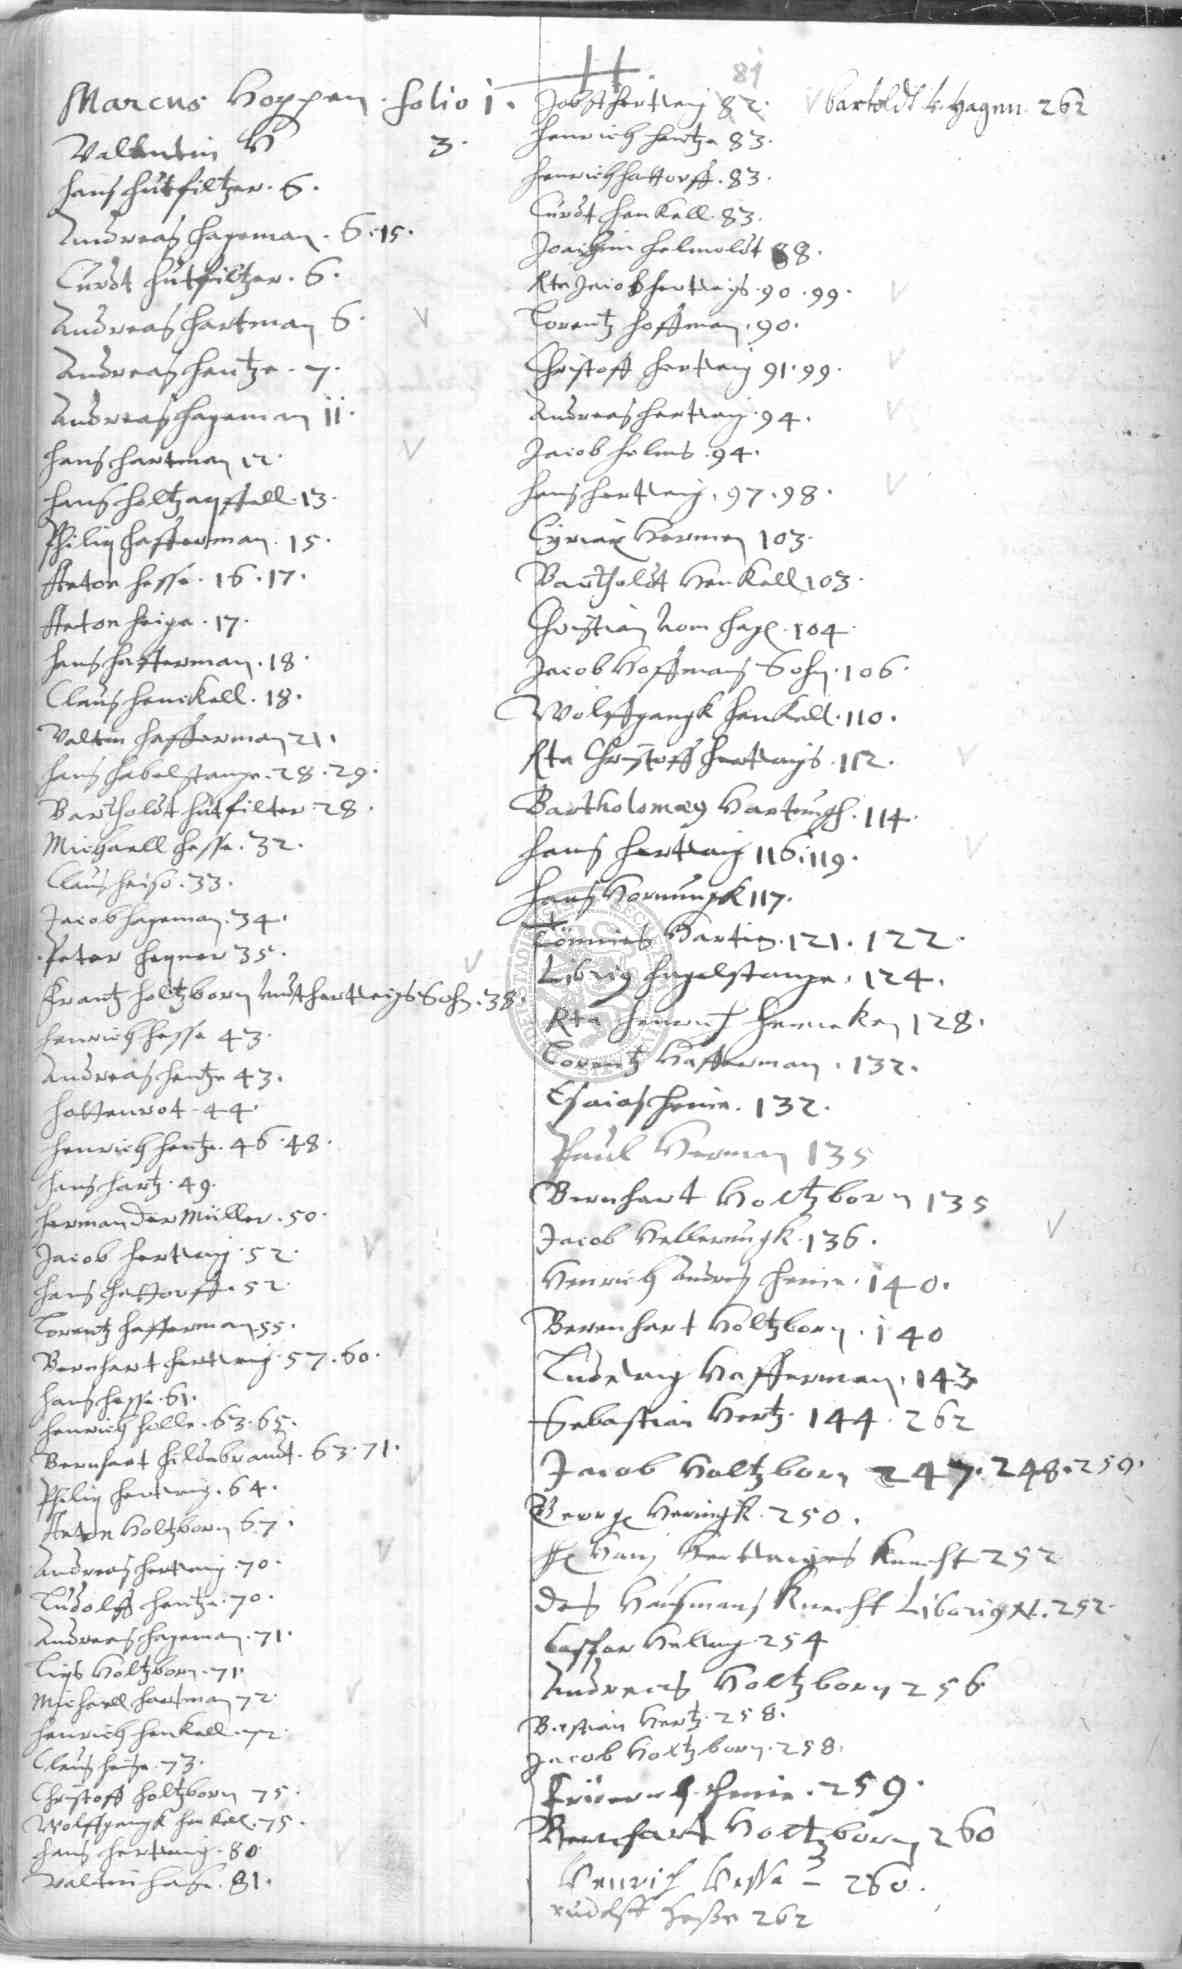 H.
Marcus Hoppen. folio 1.
Valentin H 3.
Hans Hutfiltzer. 6.
Andreas Hageman. 6. 15.
Curdt Hutfiltzer. 6.
Andreas Hartman 6.
Andreas Hentze. 7.
Andreas Hageman 11.
Hans Hartman 12.
Hans Holtzapffell. 13.
Philip Hafferman. 15.
Anton Hesse. 16. 17.
Anton Heige. 17.
Hans Hafferman. 18.
Claus Henckell. 18.
Valtin Hafferman 21.
Hans Habelstange. 28. 29.
Bartholdt Hutfilter. 28.
Michaell Hesse. 32.
Claus Heiso. 33.
Jacob Hageman. 34.
Peter 35.
Frantz Holtzborn Hertwigs Sohn. 38.
Henrich Hesse 43.
Andreas Hentze 43.
Hottenrot. 44.
Henrich Hentze. 46. 48.
Hans Hartz. 49.
Herman Der Müller. 50.
Jacob Hertwig. 52.
Hans Hattorff. 52.
Lorentz Hafferman 55.
Bernhart Hertwig. 57. 60.
Hans Hesse. 61.
Henrich Holle. 63. 65.
Bernhart Hildebrandt. 63. 71.
Philip Hertwig. 64.
Anton Holtzborn 67.
Andreas Hertwig. 70.
Ludolff Hentze. 70.
Andreas Hageman. 71.
Holtzborn. 71.
Michaell Hartman 72.
Henrich Henkell. 72.
Claus Heise. 73.
Christoff Holtzborn 75.
Wolffgangk Henkel. 75.
Hans Hertwig. 80.
Valtin Hase. 81.
81
Jobst Hertwig 82.
Henrich Hentze 83.
Henrich Hattorff. 83.
Curdt Henkell. 83.
Joachim Helmoldt 88.
Rta Jacob Hertwigs. 90. 99.
Lorentz Hoffman. 90.
Christoff Hertwig 91. 99.
Andreas Hertwig. 94.
Jacob Helms. 94.
Hans Hertwig. 97. 98.
Cyriax Herman 103.
Bartholdt Henkell 103.
Christian vom Hage. 104.
Jacob Hoffmans Sohn. 106.
Wolffgangk Henkell. 110.
Rta Christoff Hertwigs. 112.
Bartholomæus Hartungh. 114.
Hans Hertwig 116. 119.
Hans Hornungk 117.
Tönnies Hartig. 121. 122.
Liborig Hagelstange. 124.
Rta Henrich Heneken 128.
Lorentz Hafferman. 132.
Esaias Heine. 132.
Paul Herman 135
Bernhart Holtzborn 135
Jacob Hellerungk. 136.
Henrich Andres Heine. 140.
Berenhart Holtzborn. 140
Ludewig Hafferman. 143
Sebastian Hertz. 144. 262
Jacob Holtzborn 247. 248. 259.
George Heringk. 250.
Hans Hertwiges Knecht 252
Des Haußmans Knecht Liborig N. 252.
Casper Hellwig. 254
Andreas Holtzborn 256
Bastian Hertz. 258.
Jacob Holtzborn. 258.
Friderich Heine. 259.
Bernhart Holtzborn 260
Henrich Hesse — 260.
Rudolff Heße 262
Bartoldt v. Hagen. 262